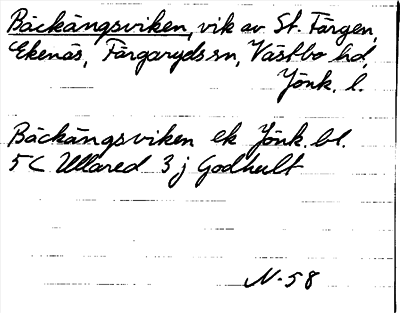 Bäckängsviken, vik av St. Färgen,
Ekenäs, Färgaryds sn, Västbo hd,
Jönk. l.
Bäckängsviken ek Jönk. bl.
5C Ullared 3 j Godhult
N-58